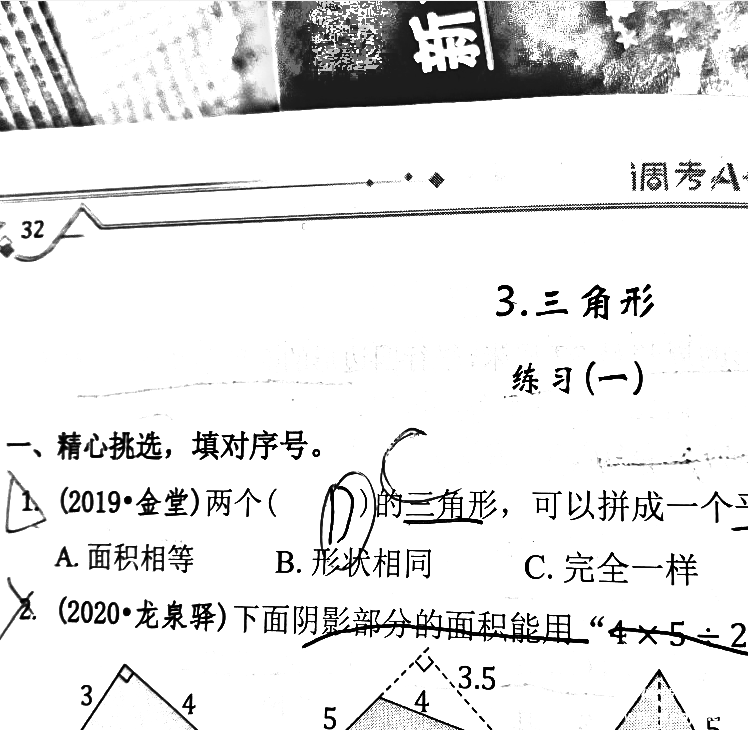 新
调考A
32
3.三角形
练习(一)
一、精心挑选，填对序号。
C
1. (2019•金堂)两个( D )的三角形，可以拼成一个平
A. 面积相等 B. 形状相同 C. 完全一样
2. (2020•龙泉驿)下面阴影部分的面积能用“4×5÷2
3 4 5 4 3.5 5